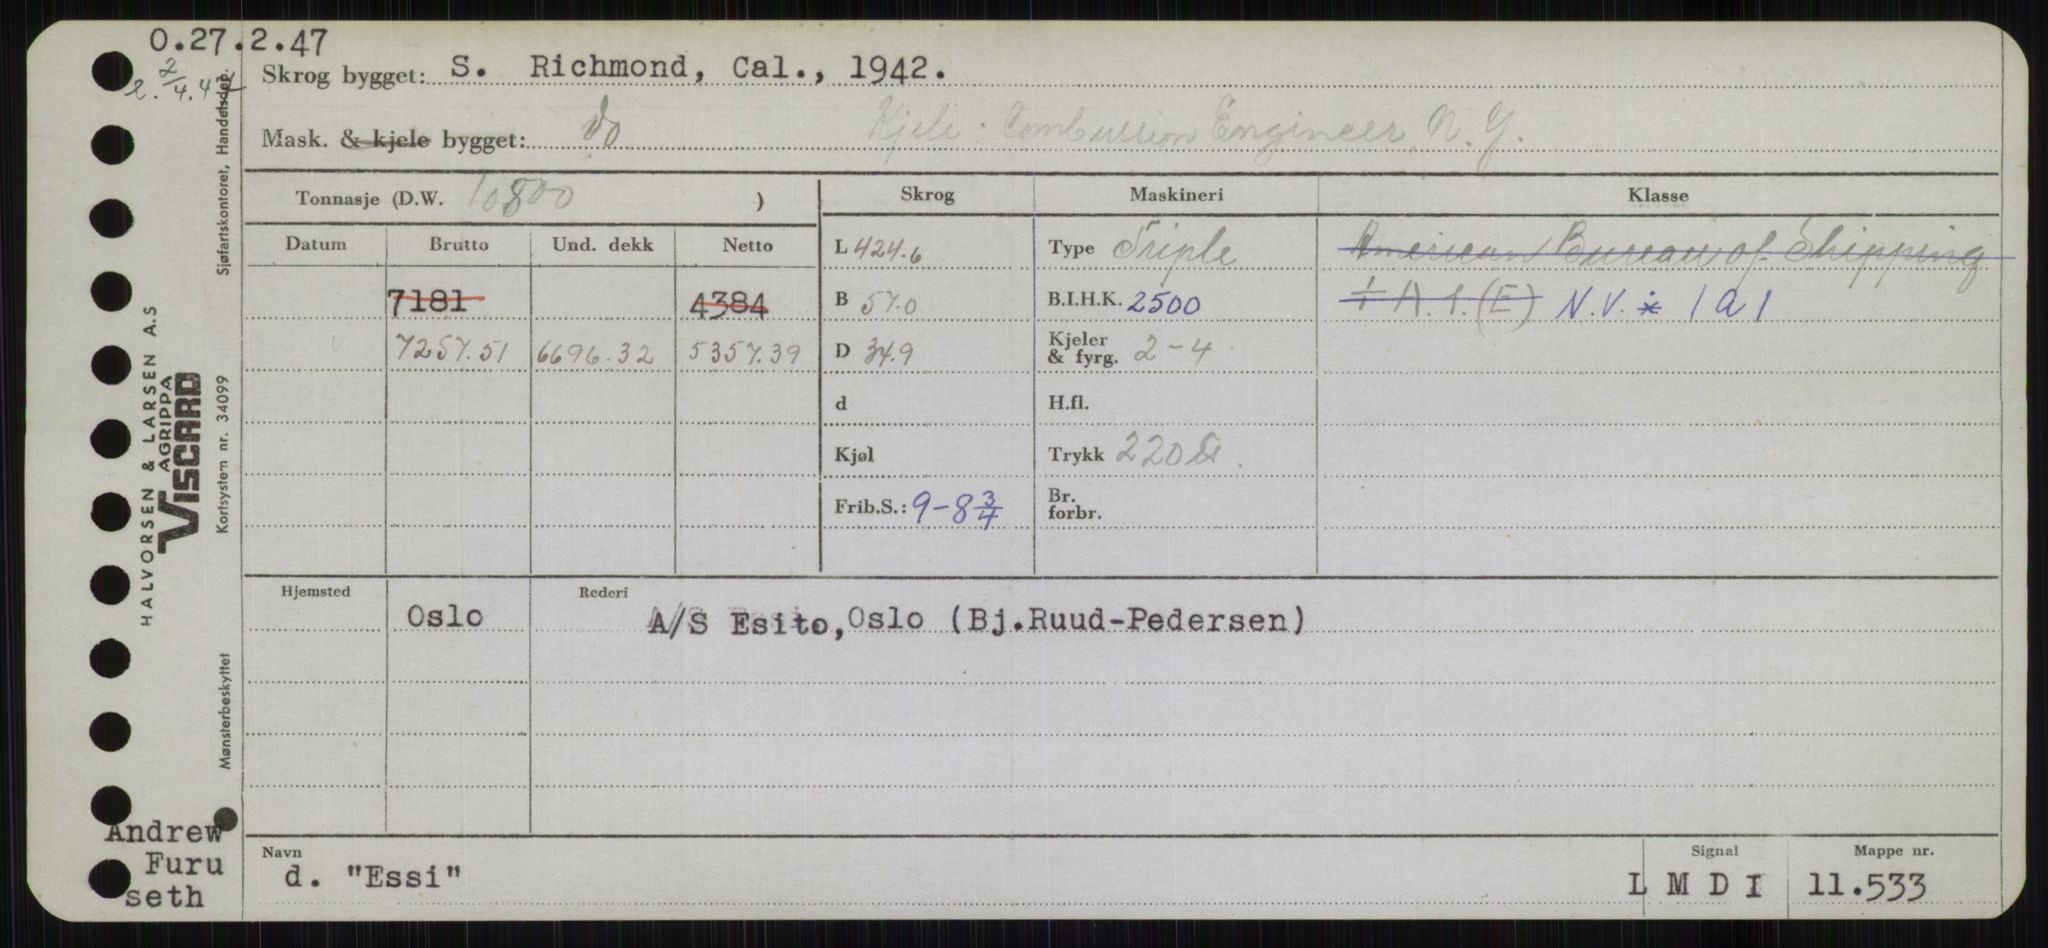 O.27.2.47
Skrog bygget: S. Richmond, Cal., 1942.
Mask. & kjele bygget: do Kjele: Combussion Engineer, N.Y.
Tonnasje (D.W. 10800 )
Skrog
Maskineri
Klasse
Datum
Brutto
Und. dekk
Netto
7181
4384
7257.51
6696.32
5357.39
L 424.6
B 57.0
D 34.9
d
Kjøl
Frib.S.: 9-8 3/4
Type Triple
B.I.H.K. 2500
Kjeler
& fyrg. 2-4
H.fl.
Trykk 220
Br.
forbr.
American Bureau of Shipping
A.1.(E) N.V. 1 a 1
Hjemsted
Rederi
Oslo
A/S Esito, Oslo (Bj.Ruud-Pedersen)
Navn
d. "Essi"
Signal
L M D I
Mappe nr.
11.533
Andrew
Furu
seth
Sjøfartskontoret, Handelsdep.
HALVORSEN & LARSEN A.S
AGRIPPA
VISCARD
Kortsystem nr. 34099
Mønsterbeskyttet